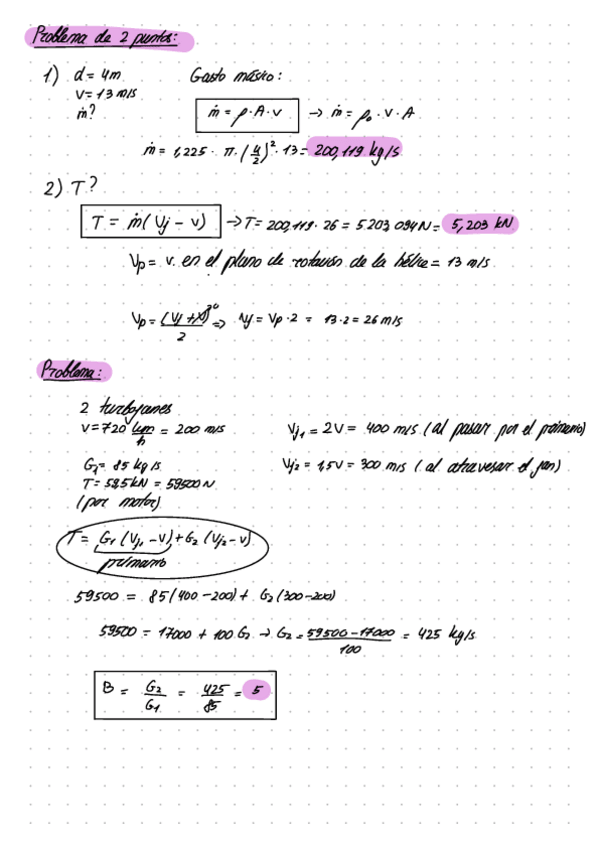 Problema de 2 puntos:
1) d = 4m Gasto másico:
v = 13 m/s
ṁ? ṁ = ρ·A·v → ṁ = ρ₀·v·A
ṁ = 1,225 · π · (4/2)² · 13 = 200,119 kg/s
2) T?
T = ṁ(Vj - v) → T = 200,119 · 26 = 5.203,094 N = 5,203 kN
Vp = v. en el plano de rotación de la hélice = 13 m/s
Vp = (Vj + V)/2 ⇒ Vj = Vp · 2 = 13·2 = 26 m/s
Problema:
2 turbofanes
v = 720 km/h = 200 m/s Vj₁ = 2V = 400 m/s (al pasar por el primario)
G₁ = 85 kg/s Vj₂ = 1,5V = 300 m/s (al atravesar el fan)
T = 59,5 kN = 59500 N
(por motor)
T = G₁(Vj₁ - V) + G₂(Vj₂ - V)
primario
59500 = 85(400 - 200) + G₂(300 - 200)
59500 = 17000 + 100 G₂ → G₂ = (59500 - 17000)/100 = 425 kg/s
B = G₂/G₁ = 425/85 = 5